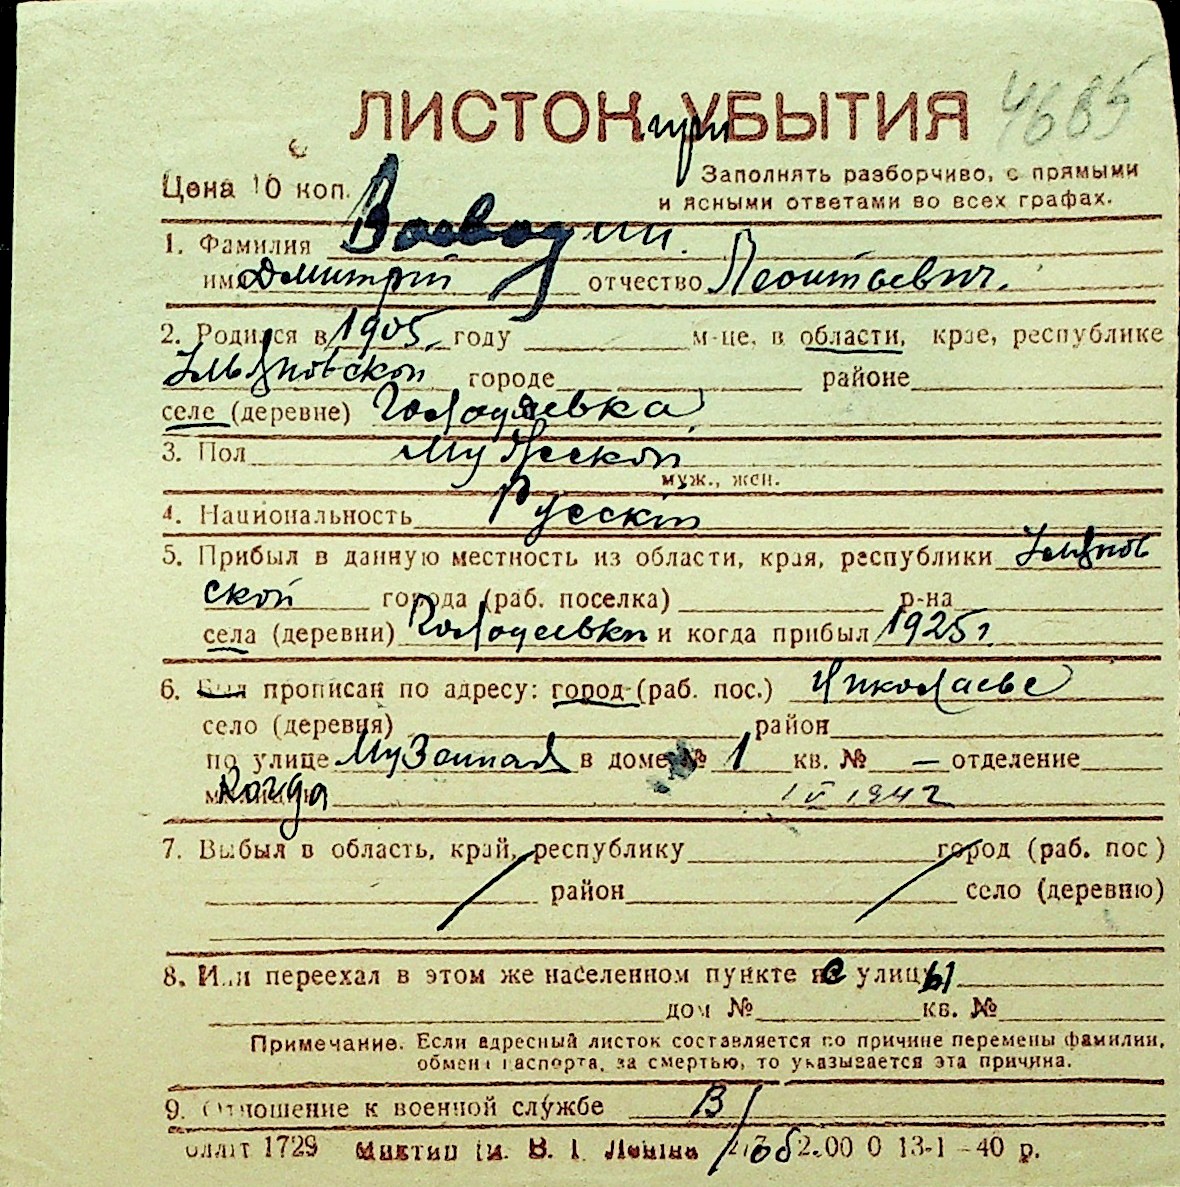 ЛИСТОК при УБЫТИЯ 4685
Цена 10 коп.
Заполнять разборчиво, с прямыми
и ясными ответами во всех графах.
1. Фамилия Воеводин.
имя Дмитрій отчество Леонтьевич.
2. Родился в 1905 году м-це, в области, крае, республике
Ульяновской городе районе
селе (деревне) Голодяевка
3. Пол Мужской
муж., жен.
4. Национальность Русскій
5. Прибыл в данную местность из области, края, республики Ульянов
ской города (раб. поселка) р-на
села (деревни) Голодяевки и когда прибыл 1925г
6. Был прописан по адресу: город (раб. пос.) Николаеве
село (деревня) район
по улице Музейная в доме № 1 кв. № — отделение
Когда 1 V 1942
7. Выбыл в область, край, республику город (раб. пос)
район село (деревню)
8. Или переехал в этом же населенном пункте с улицы
дом № кв. №
Примечание. Если адресный листок составляется по причине перемены фамилии,
обмена паспорта, за смертью, то указывается эта причина.
9. Отношение к военной службе В/об
1729 им. В. І. Леніна 2.00 0 13-1-40 р.